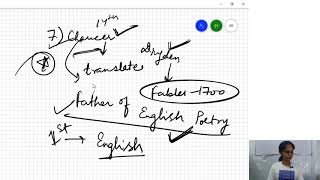 14th
7) Chaucer dryden
translate
Fables-1700
father of
English Poetry
1st → English